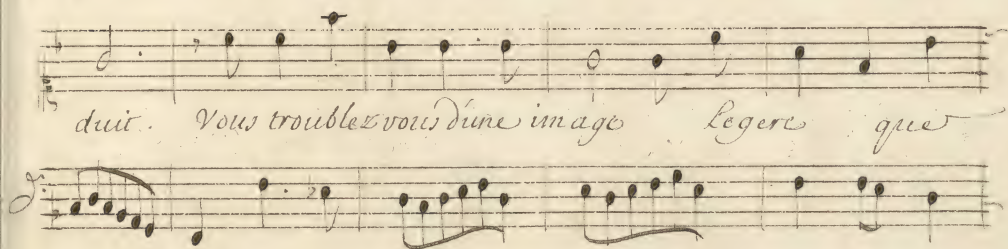 duit. Vous troublez vous d'une image legere que